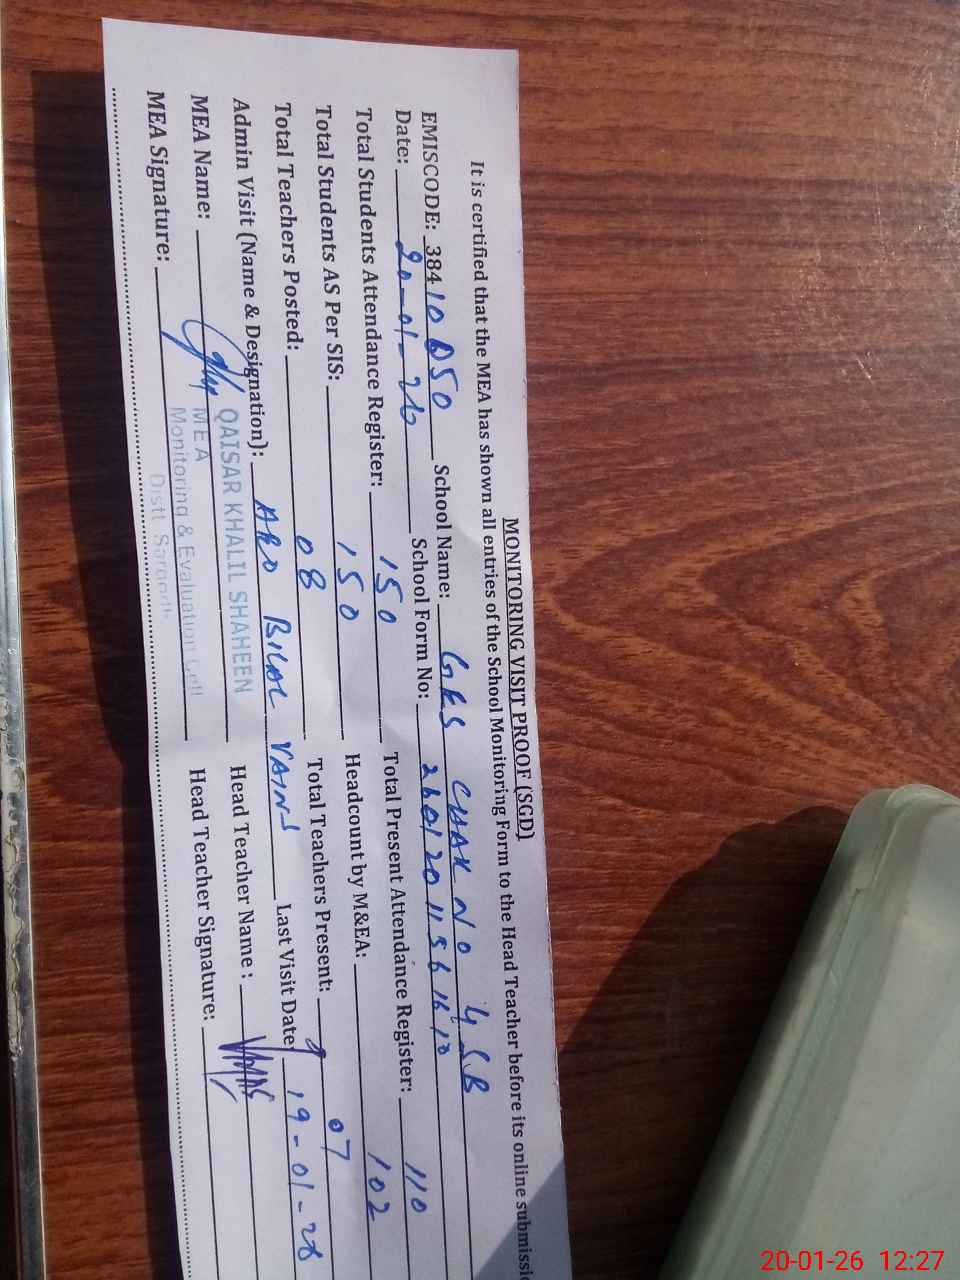 MONITORING VISIT PROOF (SGD)
It is certified that the MEA has shown all entries of the School Monitoring Form to the Head Teacher before its online submissi
EMISCODE: 38410050 School Name: GES CHAK NO 4 SB
Date: 20-01-26 School Form No:
Total Students Attendance Register: 150 Total Present Attendance Register: 110
Total Students AS Per SIS: 150 Headcount by M&EA: 102
Total Teachers Posted: 08 Total Teachers Present: 07
Admin Visit (Name & Designation): ARO BILAL VAINS Last Visit Date 19-01-26
MEA Name: QAISAR KHALIL SHAHEEN Head Teacher Name :
MEA
MEA Signature: Monitoring & Evaluation Cell Head Teacher Signature:
Distt Sargodh
20-01-26 12:27